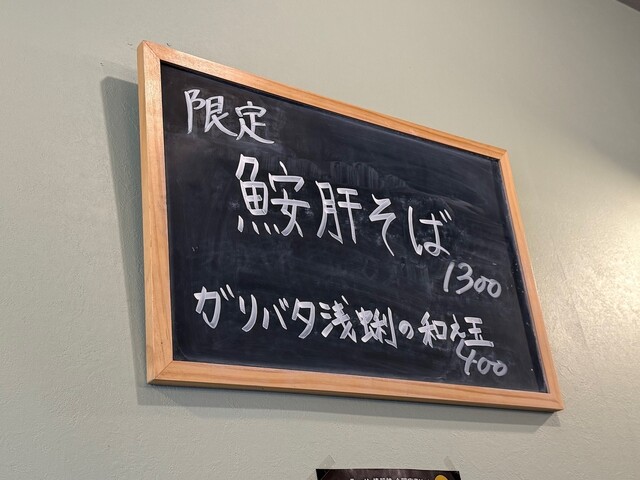 限定
鮟肝そば
1300
ガリバタ浅蜊の和え玉
400